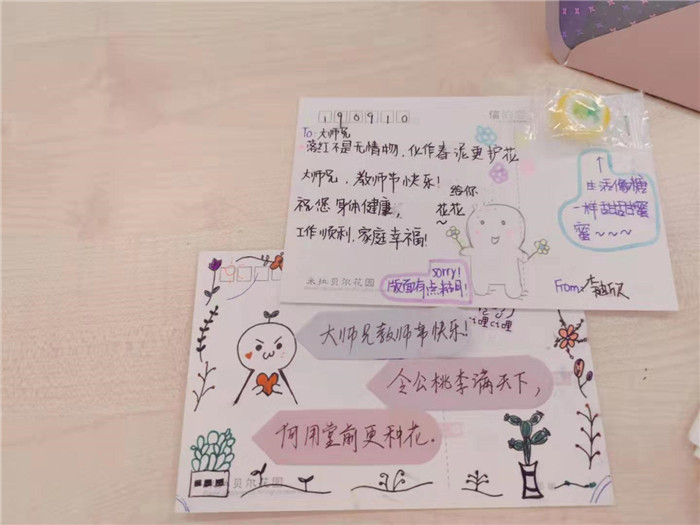 190910
To 大师兄
落红不是无情物,化作春泥更护花
大师兄,教师节快乐!
祝您身体健康,
工作顺利,家庭幸福!
给你
花花
~
生活像糖
一样甜甜甜蜜
蜜~~~
sorry!
米拉贝尔花园
From:
大师兄教师节快乐!
令公桃李满天下,
何用堂前更种花.
贝尔花园